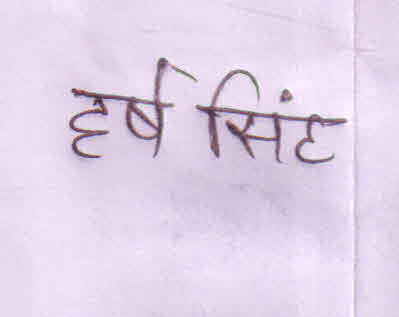 हर्ष सिंह